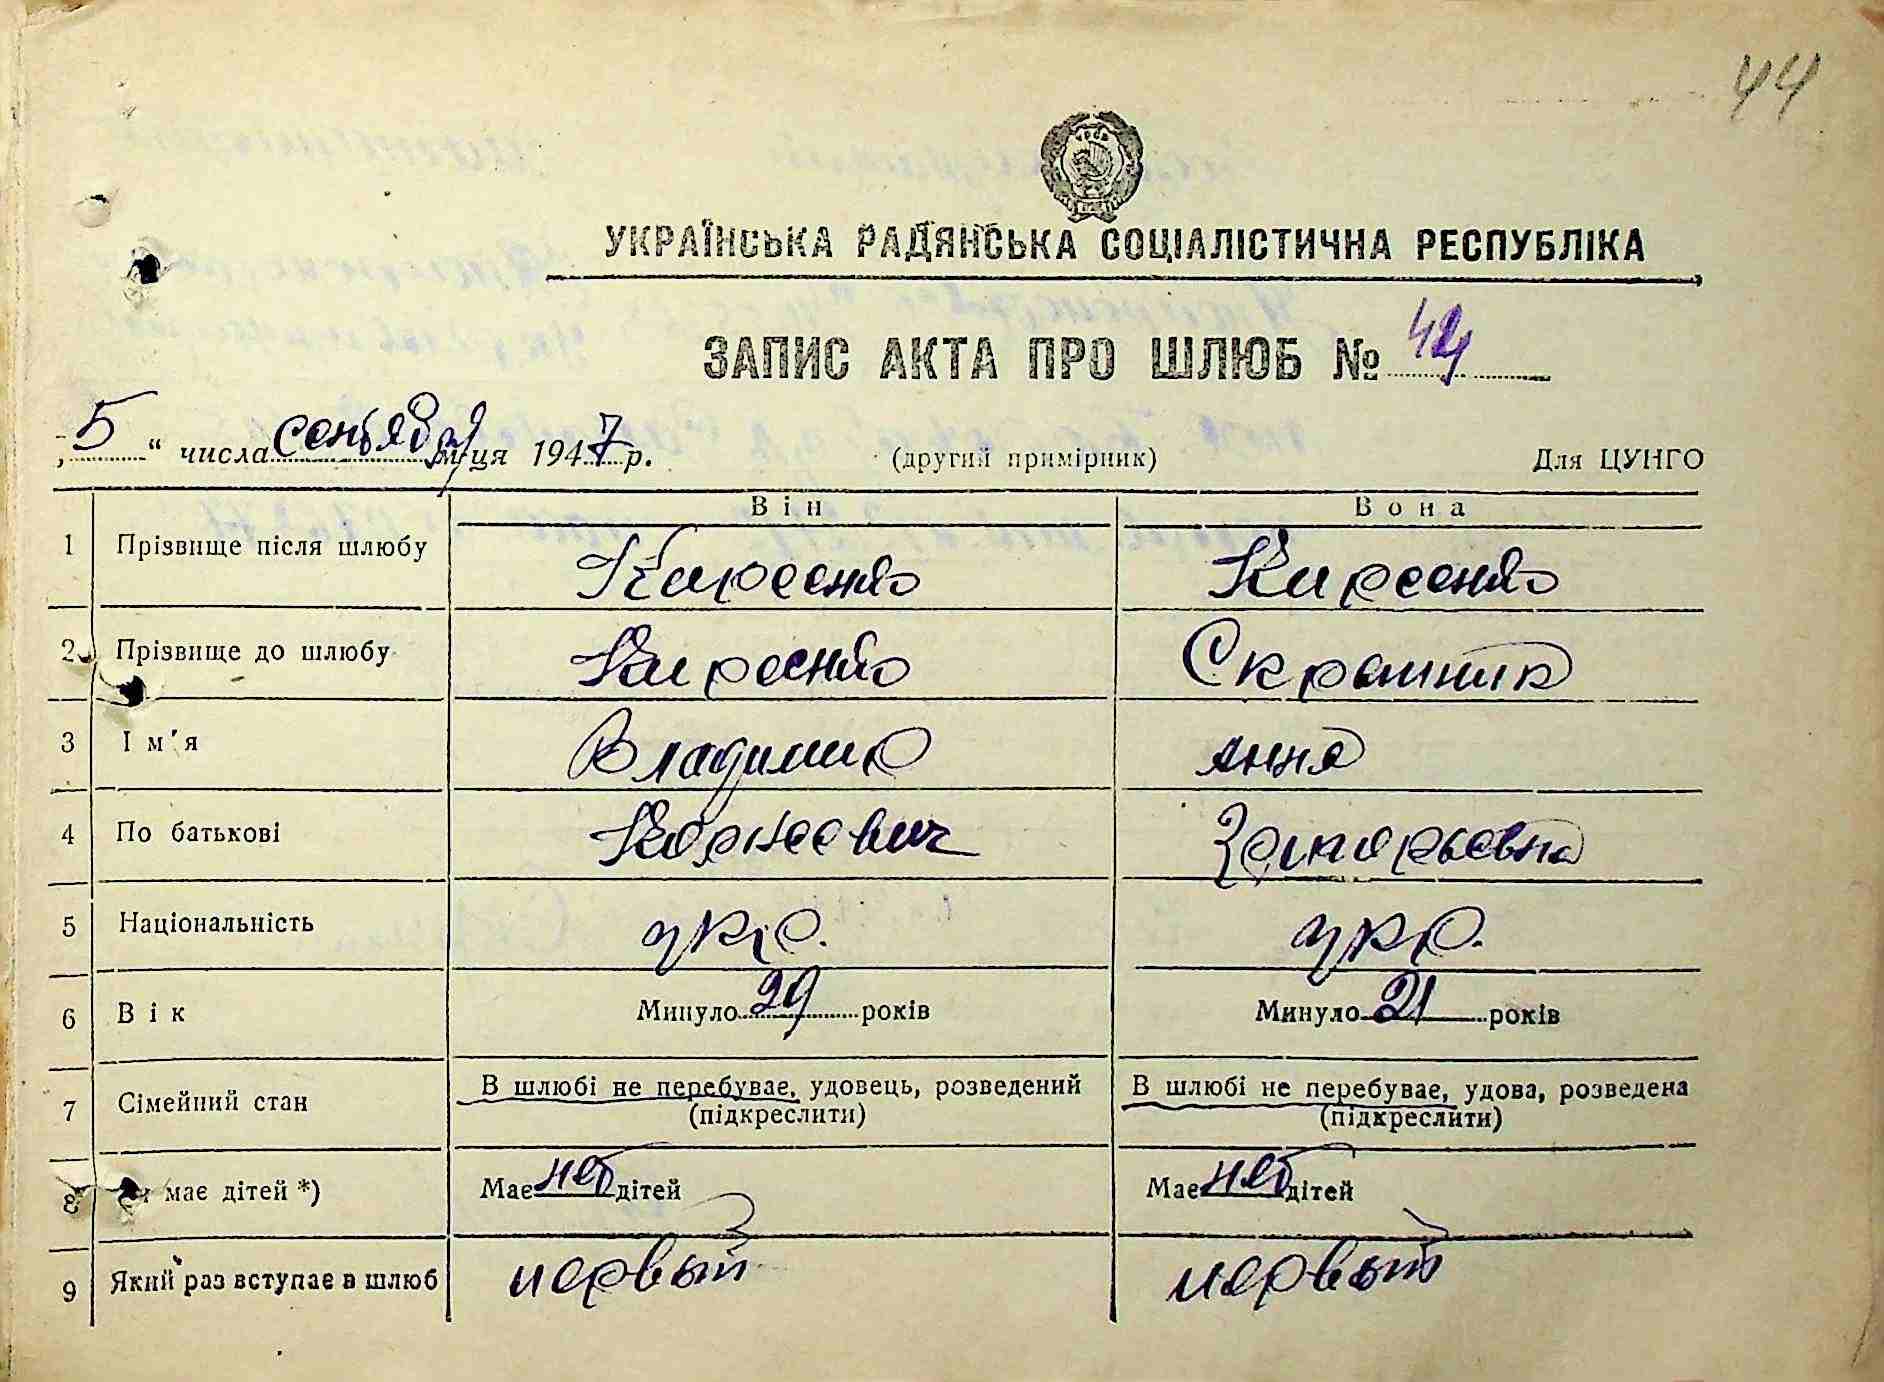 44
УКРАЇНСЬКА РАДЯНСЬКА СОЦІАЛІСТИЧНА РЕСПУБЛІКА
ЗАПИС АКТА ПРО ШЛЮБ №
„5“ числа сентября м-ця 1947 р. (другий примірник) Для ЦУНГО
Він Вона
1 Прізвище після шлюбу
2 Прізвище до шлюбу
3 Ім'я Владимир Анна
4 По батькові Корнеевич Григорьевна
5 Національність укр. укр.
6 Вік Минуло 29 років Минуло 21 років
7 Сімейний стан В шлюбі не перебуває, удовець, розведений В шлюбі не перебуває, удова, розведена
(підкреслити) (підкреслити)
8 має дітей *) Має нет дітей Має нет дітей
9 Який раз вступає в шлюб первый первый